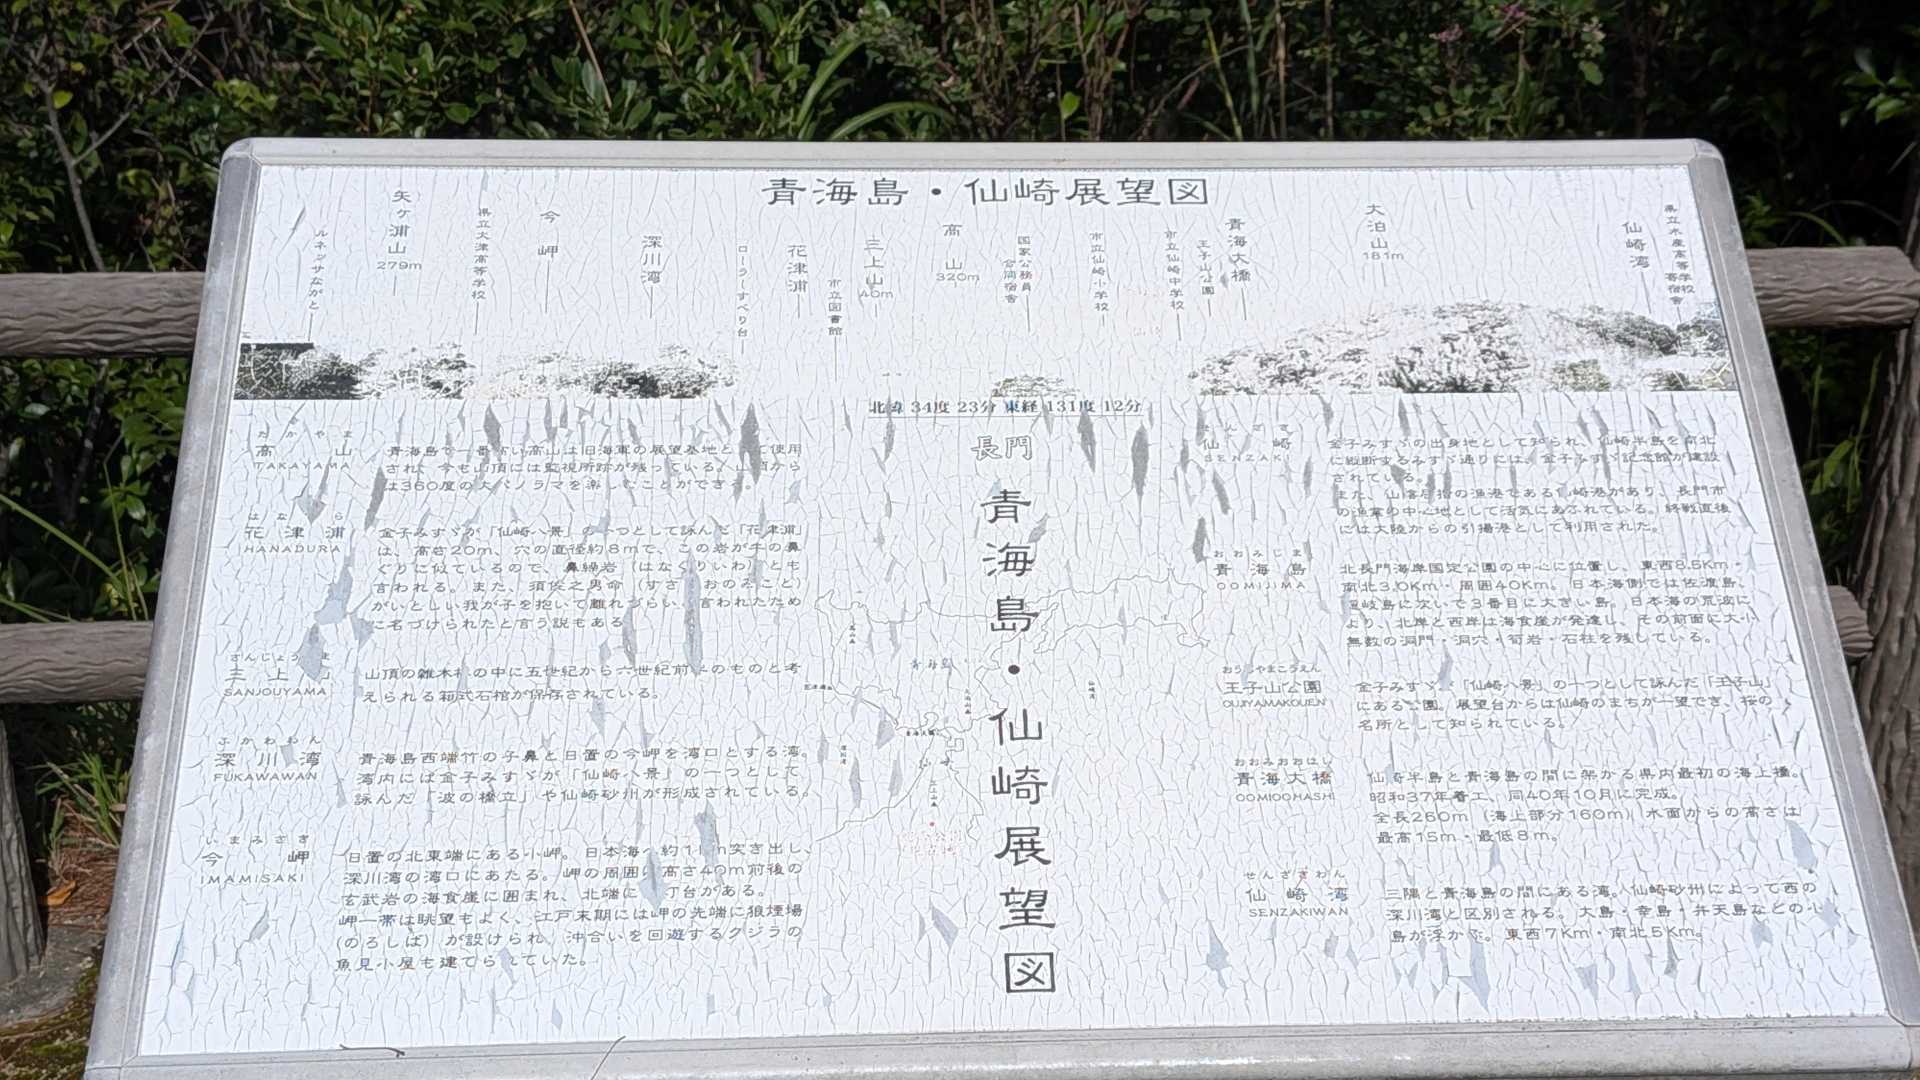 青海島・仙崎展望図
ルネッサながと
矢ヶ浦山
279m
県立大津高等学校
今岬
深川湾
ローラーすべり台
花津浦
市立図書館
三上山
40m
高山
320m
国家公務員
合同宿舎
市立仙崎小学校
市立仙崎中学校
王子山公園
青海大橋
大泊山
181m
仙崎湾
県立水産高等学校
寄宿舎
北緯 34度 23分 東経 131度 12分
たかやま
高山
TAKAYAMA
青海島で一番高い高山は旧海軍の展望基地として使用
され、今も山頂には監視所跡が残っている。山頂から
は360度の大パノラマを楽しむことができる。
はなづら
花津浦
HANADURA
金子みすゞが「仙崎八景」の一つとして詠んだ「花津浦」
は、高さ20m、穴の直径約8mで、この岩が牛の鼻
ぐりに似ているので、鼻繰岩（はなぐりいわ）とも
言われる。また、須佐之男命（すさのおのみこと）
がいとしい我が子を抱いて離れづらいと言われたため
に名づけられたと言う説もある
さんじょうやま
三上山
SANJOUYAMA
山頂の雑木林の中に五世紀から六世紀前半のものと考
えられる箱式石棺が保存されている。
ふかわわん
深川湾
FUKAWAWAN
青海島西端竹の子鼻と日置の今岬を湾口とする湾。
湾内には金子みすゞが「仙崎八景」の一つとして
詠んだ「波の橋立」や仙崎砂州が形成されている。
いまみさき
今岬
IMAMISAKI
日置の北東端にある小岬。日本海へ約1km突き出し、
深川湾の湾口にあたる。岬の周囲は高さ40m前後の
玄武岩の海食崖に囲まれ、北端に灯台がある。
岬一帯は眺望もよく、江戸末期には岬の先端に狼煙場
(のろしば）が設けられ、沖合いを回遊するクジラの
魚見小屋も建てられていた。
長門
青海島・仙崎展望図
青海島
せんざき
仙崎
SENZAKI
金子みすゞの出身地として知られ、仙崎半島を南北
に縦断するみすゞ通りには、金子みすゞ記念館が建設
されている。
また、山陰屈指の漁港である仙崎港があり、長門市
の漁業の中心地として活気にあふれている。終戦直後
には大陸からの引揚港として利用された。
おおみじま
青海島
OOMIJIMA
北長門海岸国定公園の中心に位置し、東西8.5Km・
南北3.0Km・周囲40Km。日本海側では佐渡島、
隠岐島に次いで3番目に大きい島。日本海の荒波に
より、北岸と西岸は海食崖が発達し、その前面に大小
無数の洞門・洞穴・筍岩・石柱を残している。
おうじやまこうえん
王子山公園
OUJIYAMAKOUEN
金子みすゞが「仙崎八景」の一つとして詠んだ「王子山」
にある公園。展望台からは仙崎のまちが一望でき、桜の
名所として知られている。
おおみおおはし
青海大橋
OOMIOOHASHI
仙崎半島と青海島の間に架かる県内最初の海上橋。
昭和37年着工、同40年10月に完成。
全長260m（海上部分160m）水面からの高さは
最高15m・最低8m。
せんざきわん
仙崎湾
SENZAKIWAN
三隅と青海島の間にある湾。仙崎砂州によって西の
深川湾と区別される。大島・幸島・弁天島などの小
島が浮かぶ。東西7Km・南北5Km。